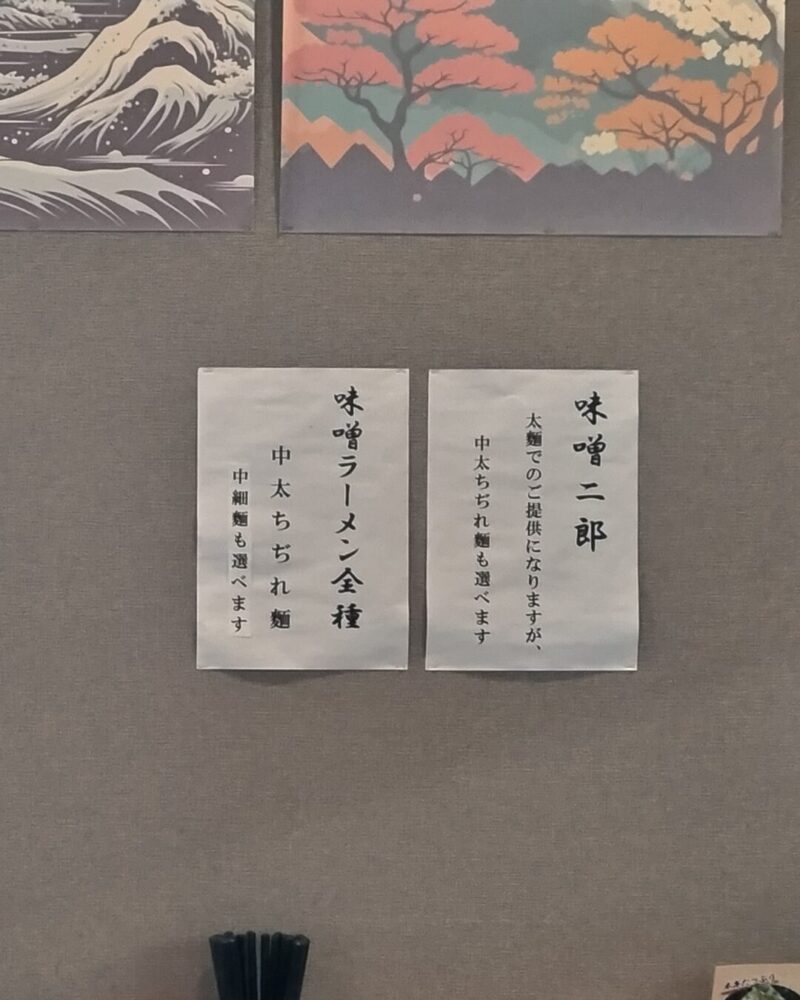 味噌二郎
太麵でのご提供になりますが、
中太ちぢれ麵も選べます
味噌ラーメン全種
中太ちぢれ麵
中細麵も選べます